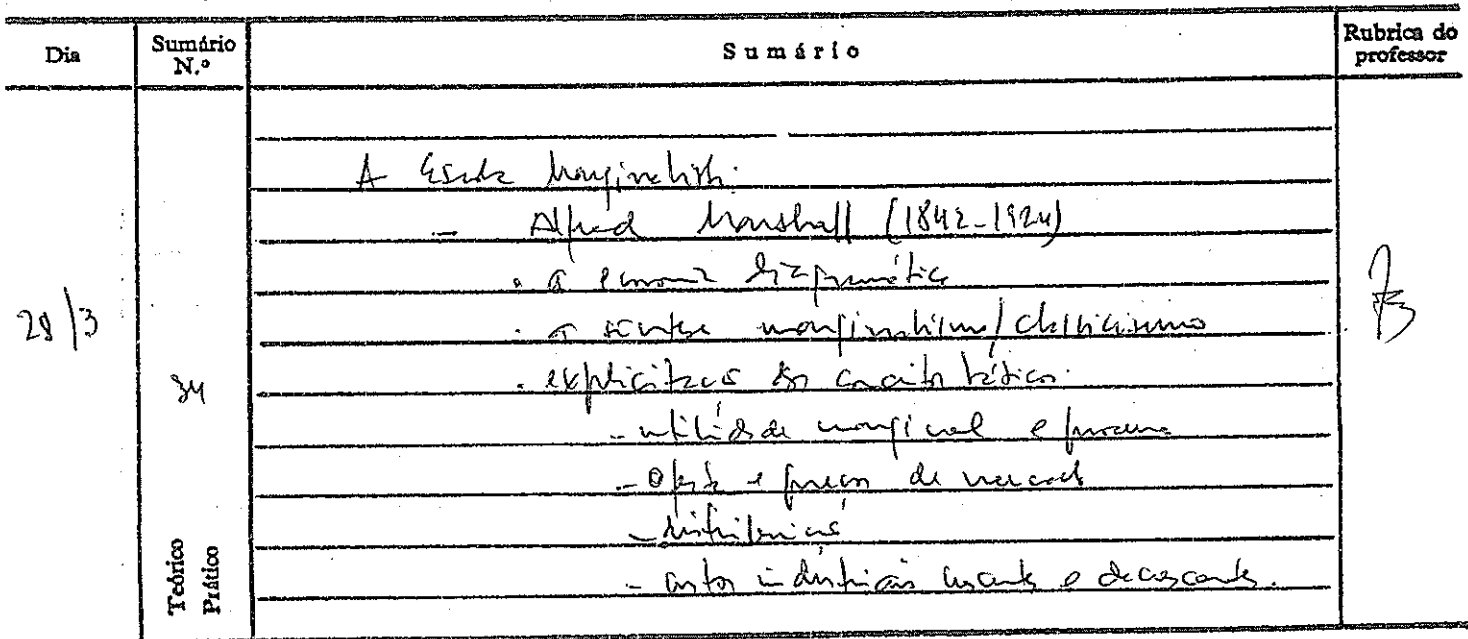 Dia
Sumário N.º
Sumário
Rubrica do professor
A Escola Marginalista:
- Alfred Marshall (1842-1924)
. a economia diagramática
. a síntese marginalismo/classicismo
. explicitação dos conceitos básicos:
- utilidade marginal e procura
- Oferta e preços de mercado
- distribuição
- custos industriais crescentes e decrescentes.
29/3
34
Teórico
Prático